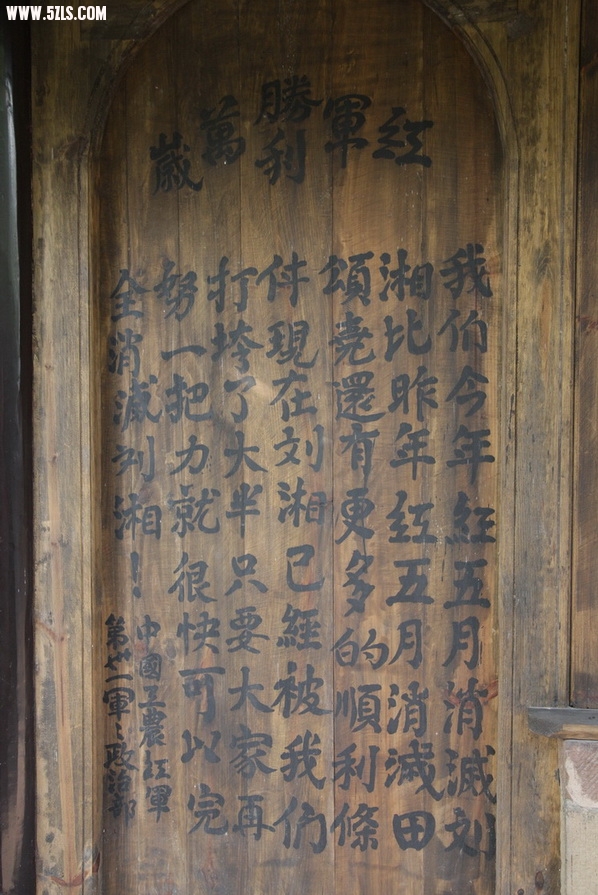 WWW.5ZLS.COM
紅軍勝利萬歲
我伯今年紅五月消滅刘
湘比昨年紅五月消滅田
頌堯還有更多的順利條
件現在刘湘已經被我们
打垮了大半只要大家再
努一把力就很快可以完
全消滅刘湘！
中國工農紅軍
第卅一軍々政治部